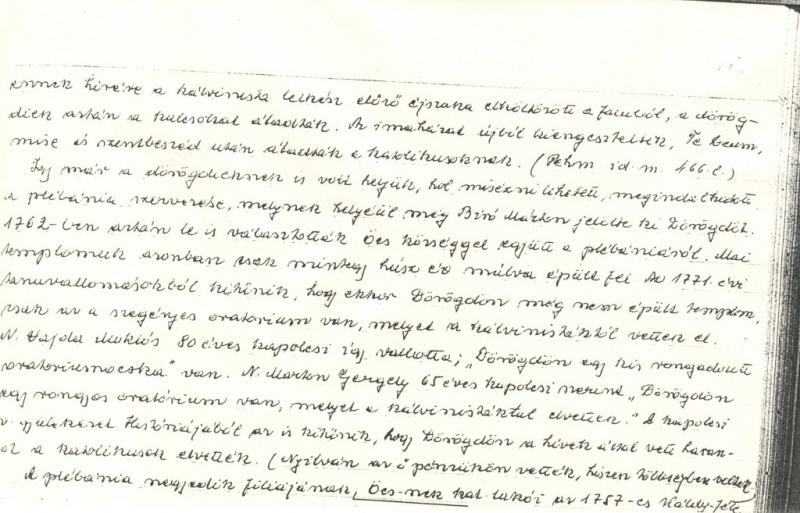 ennek hírére a kálvinista lelkész előző éjszaka elköltözött a faluból, a dörög-
diek aztán a kulcsokat átadták. Az imaházat újból kiengesztelték, Te Deum,
mise és szentbeszéd után átadták a katolikusoknak. (Pehm id. m. 466. l.)
Így már a dörögdieknek is volt helyük, hol misézni lehetett, megindulhatott
a plébánia szervezése, melynek helyéül még Bíró Márton jelölte ki Dörögdöt.
1762-ben aztán le is választották Öcs községgel együtt a plébániáról. Mai
templomuk azonban csak mintegy húsz év múlva épült fel. Az 1771. évi
tanuvallomásokból kitűnik, hogy ekkor Dörögdön még nem épült templom,
csak az a szegényes oratorium van, melyet a kálvinistáktól vettek el.
N. Vajda Miklós 80 éves kapolcsi így vallotta; „Dörögdön egy kis rongyadt
oratoriumocska" van. N. Marton Gergely 65 éves kapolcsi szerint „Dörögdön
egy rongyos oratórium van, melyet a kálvinistáktal elvettek." A kapolcsi
gyülekezet Históriájából az is kitűnik, hogy Dörögdön a hívek által vett haran-
ot a katolikusok elvették. (Nyilván az ő pénzükön vették, hiszen többségben voltak
A plébánia negyedik filiájának, Öcs-nek kat. lakói az 1757-es Kált-féle